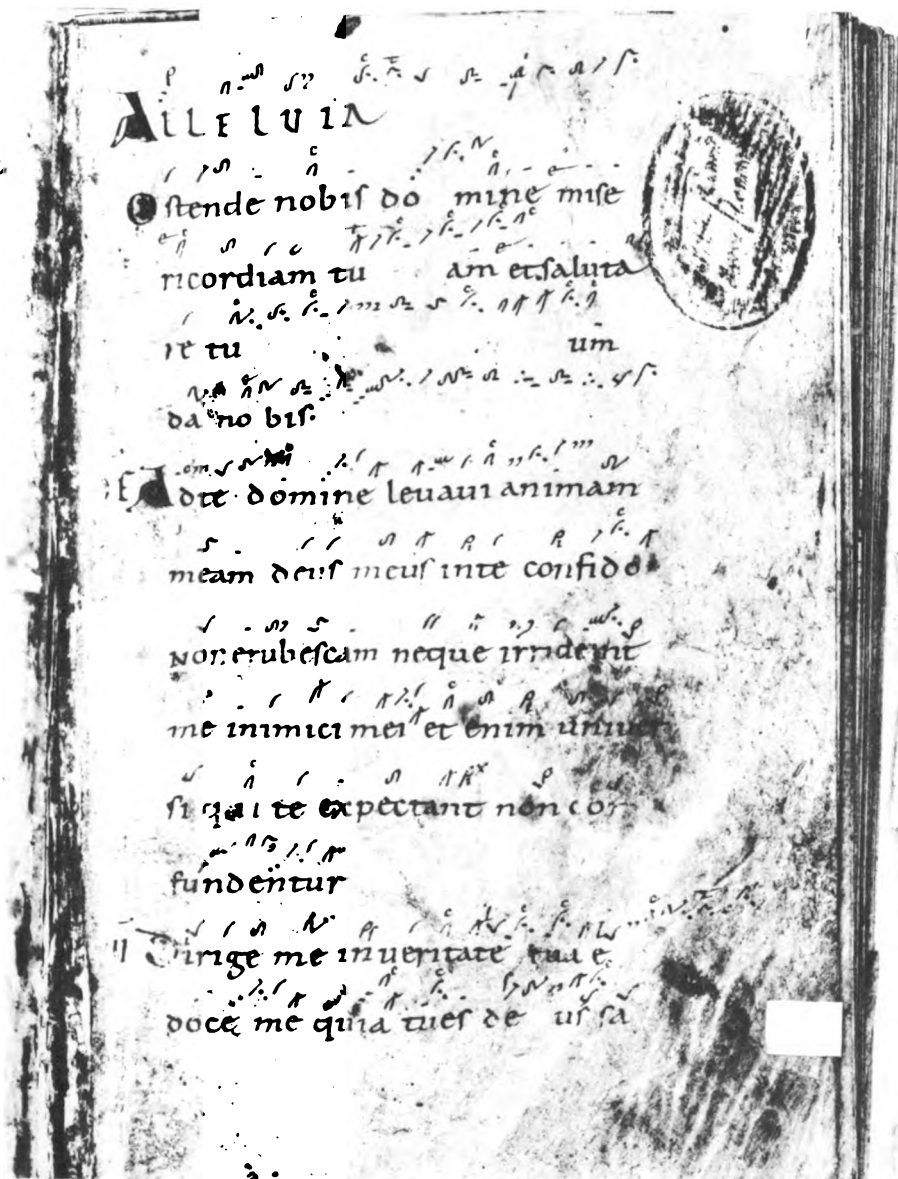 ALLELUIA
Ostende nobis do mine mise
ricordiam tu am et saluta
re tu um
da no bis.
OF Ad te domine levavi animam
meam deus meus in te confido
Non erubescam neque irrideant
me inimici mei et enim univer
si qui te expectant non con
fundentur
Dirige me in veritate tua e
doce me quia tu es de us sa